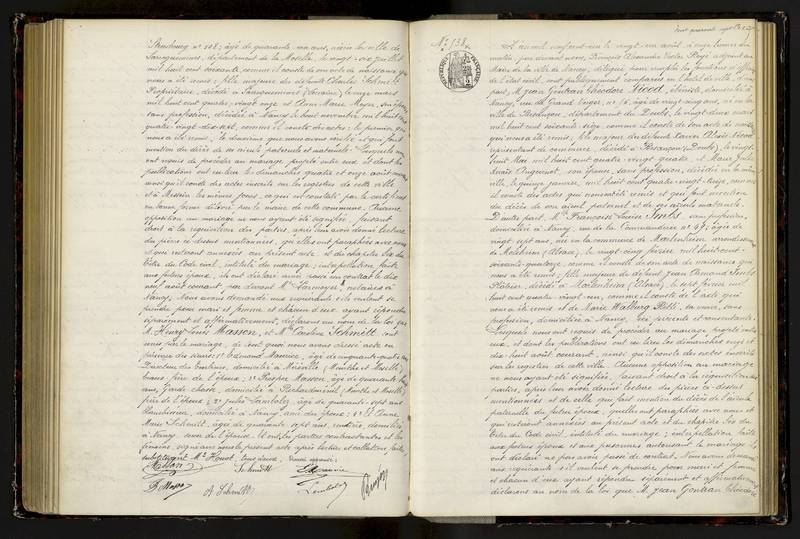 Strasbourg nº 108; âgé de quarante un ans, né en la ville de
Sarreguemines, département de la Moselle, le vingt-six juillet
mil huit cent soixante, comme il conste de son acte de naissance qui
nous a été remis; fille majeure des défunts Charles Schmitt
Propriétaire, décédé à Sarreguemines (Lorraine) le onze mars
mil huit cent quatre-vingt onze et Anne Marie Meyer, son épouse
sans profession, décédée à Nancy le huit novembre mil huit cent
quatre-vingt dix-sept, comme il conste des actes; le premier qui
nous a été remis, le deuxième que nous avons vérifié et qui fait
mention du décès de ses aïeuls paternels et maternels. Lesquels
ont requis de procéder au mariage projeté entre eux et dont les
publications ont eu lieu les dimanches quatre et onze août
ainsi qu'il conste des actes inscrits sur les registres de cette ville
et à Messein les mêmes jours, ce qui est constaté par le certificat
en bonne forme délivré par le maire de cette commune. Aucune
opposition au mariage ne nous ayant été signifiée, faisant
droit à la réquisition des parties, après leur avoir donné lecture
des pièces ci-dessus mentionnées, qu'elles ont paraphées avec nous
et qui resteront annexées au présent acte et du chapitre six du
titre du Code civil, intitulé du mariage; interpellation faite
aux futurs époux, ils ont déclaré avoir passé un contrat le dix
neuf août courant, par devant Me notaire à
Nancy. Nous avons demandé aux requérants s'ils veulent se
prendre pour mari et femme et chacun d'eux ayant répondu
séparément et affirmativement, déclarons au nom de la loi que
M. Henry Louis Masson, et Mlle Caroline Schmitt sont
unis par le mariage, de tout quoi nous avons dressé acte en
présence des sieurs: 1º Edmond Maurice, âgé de cinquante-quatre ans
Directeur des Contines, domicilié à Méréville (Meurthe et Moselle),
beau-frère de l'épouse; 2º Prosper Masson, âgé de quarante
ans, Garde chasse, domicilié à Richardménil (Meurthe et Moselle),
frère de l'époux; 3º Jules Lambolez, âgé de quarante-sept ans
domicilié à Nancy, ami des époux; 4º et Anne
Marie Schmitt, âgée de quarante sept ans, rentière, domiciliée
à Nancy, sœur de l'épouse. Lesquels, parties contractantes et les
témoins signé avec nous le présent acte après lecture et collation faite,
Masson Schmitt E. Maurice
P. Masson A. Schmitt Lambolez
Nº 738
L'an mil neuf cent un, le vingt-un août, à onze heures du
matin, par devant nous, François Alexandre Victor Roye adjoint au
Maire de la ville de Nancy, délégué pour remplir les fonctions d'officier
de l'état civil, sont publiquement comparus en l'hôtel de ville, d'une
part, M. Jean Gontran Théodore Vicod, ébéniste, domicilié à
Nancy, rue du Grand Verger, nº 16, âgé de vingt cinq ans, né en la
ville de Besançon, département du Doubs, le vingt-deux
mil huit cent soixante seize, comme il conste de son acte de naissance
qui nous a été remis; fils majeur des défunts Xavier Aloïs Vicod
représentant de commerce, décédé à Besançon (Doubs), le vingt-
huit Mai mil huit cent quatre-vingt quatre, et Marie Julie
Anaïs Guyennot, son épouse, sans profession, décédée en la même
ville, le quinze janvier, mil huit cent quatre-vingt-treize, comme
il conste des actes qui nous ont été remis et qui font mention
du décès de son aïeul paternel et de ses aïeuls maternels.
D'autre part, Mlle Françoise Louise Imbs, sans profession,
domiciliée à Nancy, rue de la Commanderie nº 47; âgée de
vingt sept ans, née en la commune de Marlenheim arrondissement
de Molsheim (Alsace), le vingt cinq février, mil huit cent
soixante-quatorze, comme il conste de son acte de naissance qui
nous a été remis; fille majeure de défunt Jean Armand Imbs
Plâtrier, décédé à Marlenheim (Alsace), le sept février mil
huit cent quatre-vingt-un, comme il conste de l'acte qui
nous a été remis et de Marie Walburg Pitti, sa veuve, sans
profession, domiciliée à Nancy, ici présente et consentante.
Lesquels nous ont requis de procéder au mariage projeté entre
eux, et dont les publications ont eu lieu les dimanches onze et
dix-huit août courant, ainsi qu'il conste des actes inscrits
sur les registres de cette ville. Aucune opposition au mariage
ne nous ayant été signifiée, faisant droit à la réquisition des
parties, après leur avoir donné lecture des pièces ci-dessus
mentionnées et de celle qui fait mention du décès de l'aïeule
paternelle du futur époux, qu'elles ont paraphées avec nous et
qui resteront annexées au présent acte et du chapitre six du
titre du Code civil, intitulé du mariage; interpellation faite
aux futurs époux et aux personnes autorisant le mariage ils
ont déclaré ne pas avoir passé de contrat. Nous avons demandé
aux requérants s'ils veulent se prendre pour mari et femme
et chacun d'eux ayant répondu séparément et affirmativement
déclarons au nom de la loi que M. Jean Gontran Théodore